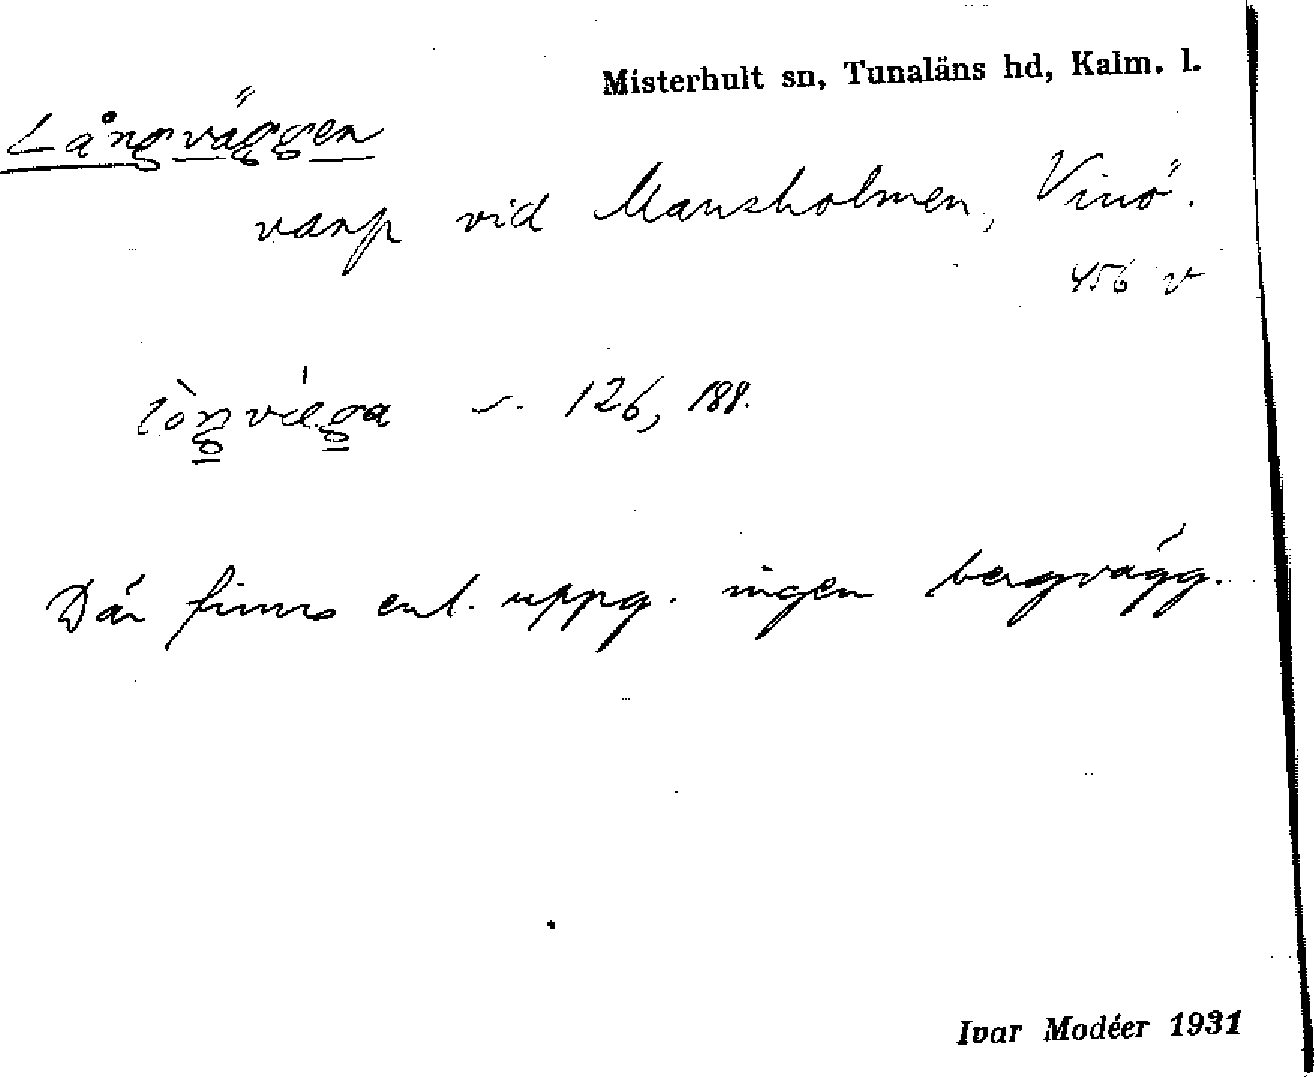 Misterhult sn, Tunaläns hd, Kalm. l.
Långväggen
varp vid Marsholmen, Vinö.
456 v
s. 126, 188.
Där finns enl. uppg. ingen bergvägg.
Ivar Modéer 1931